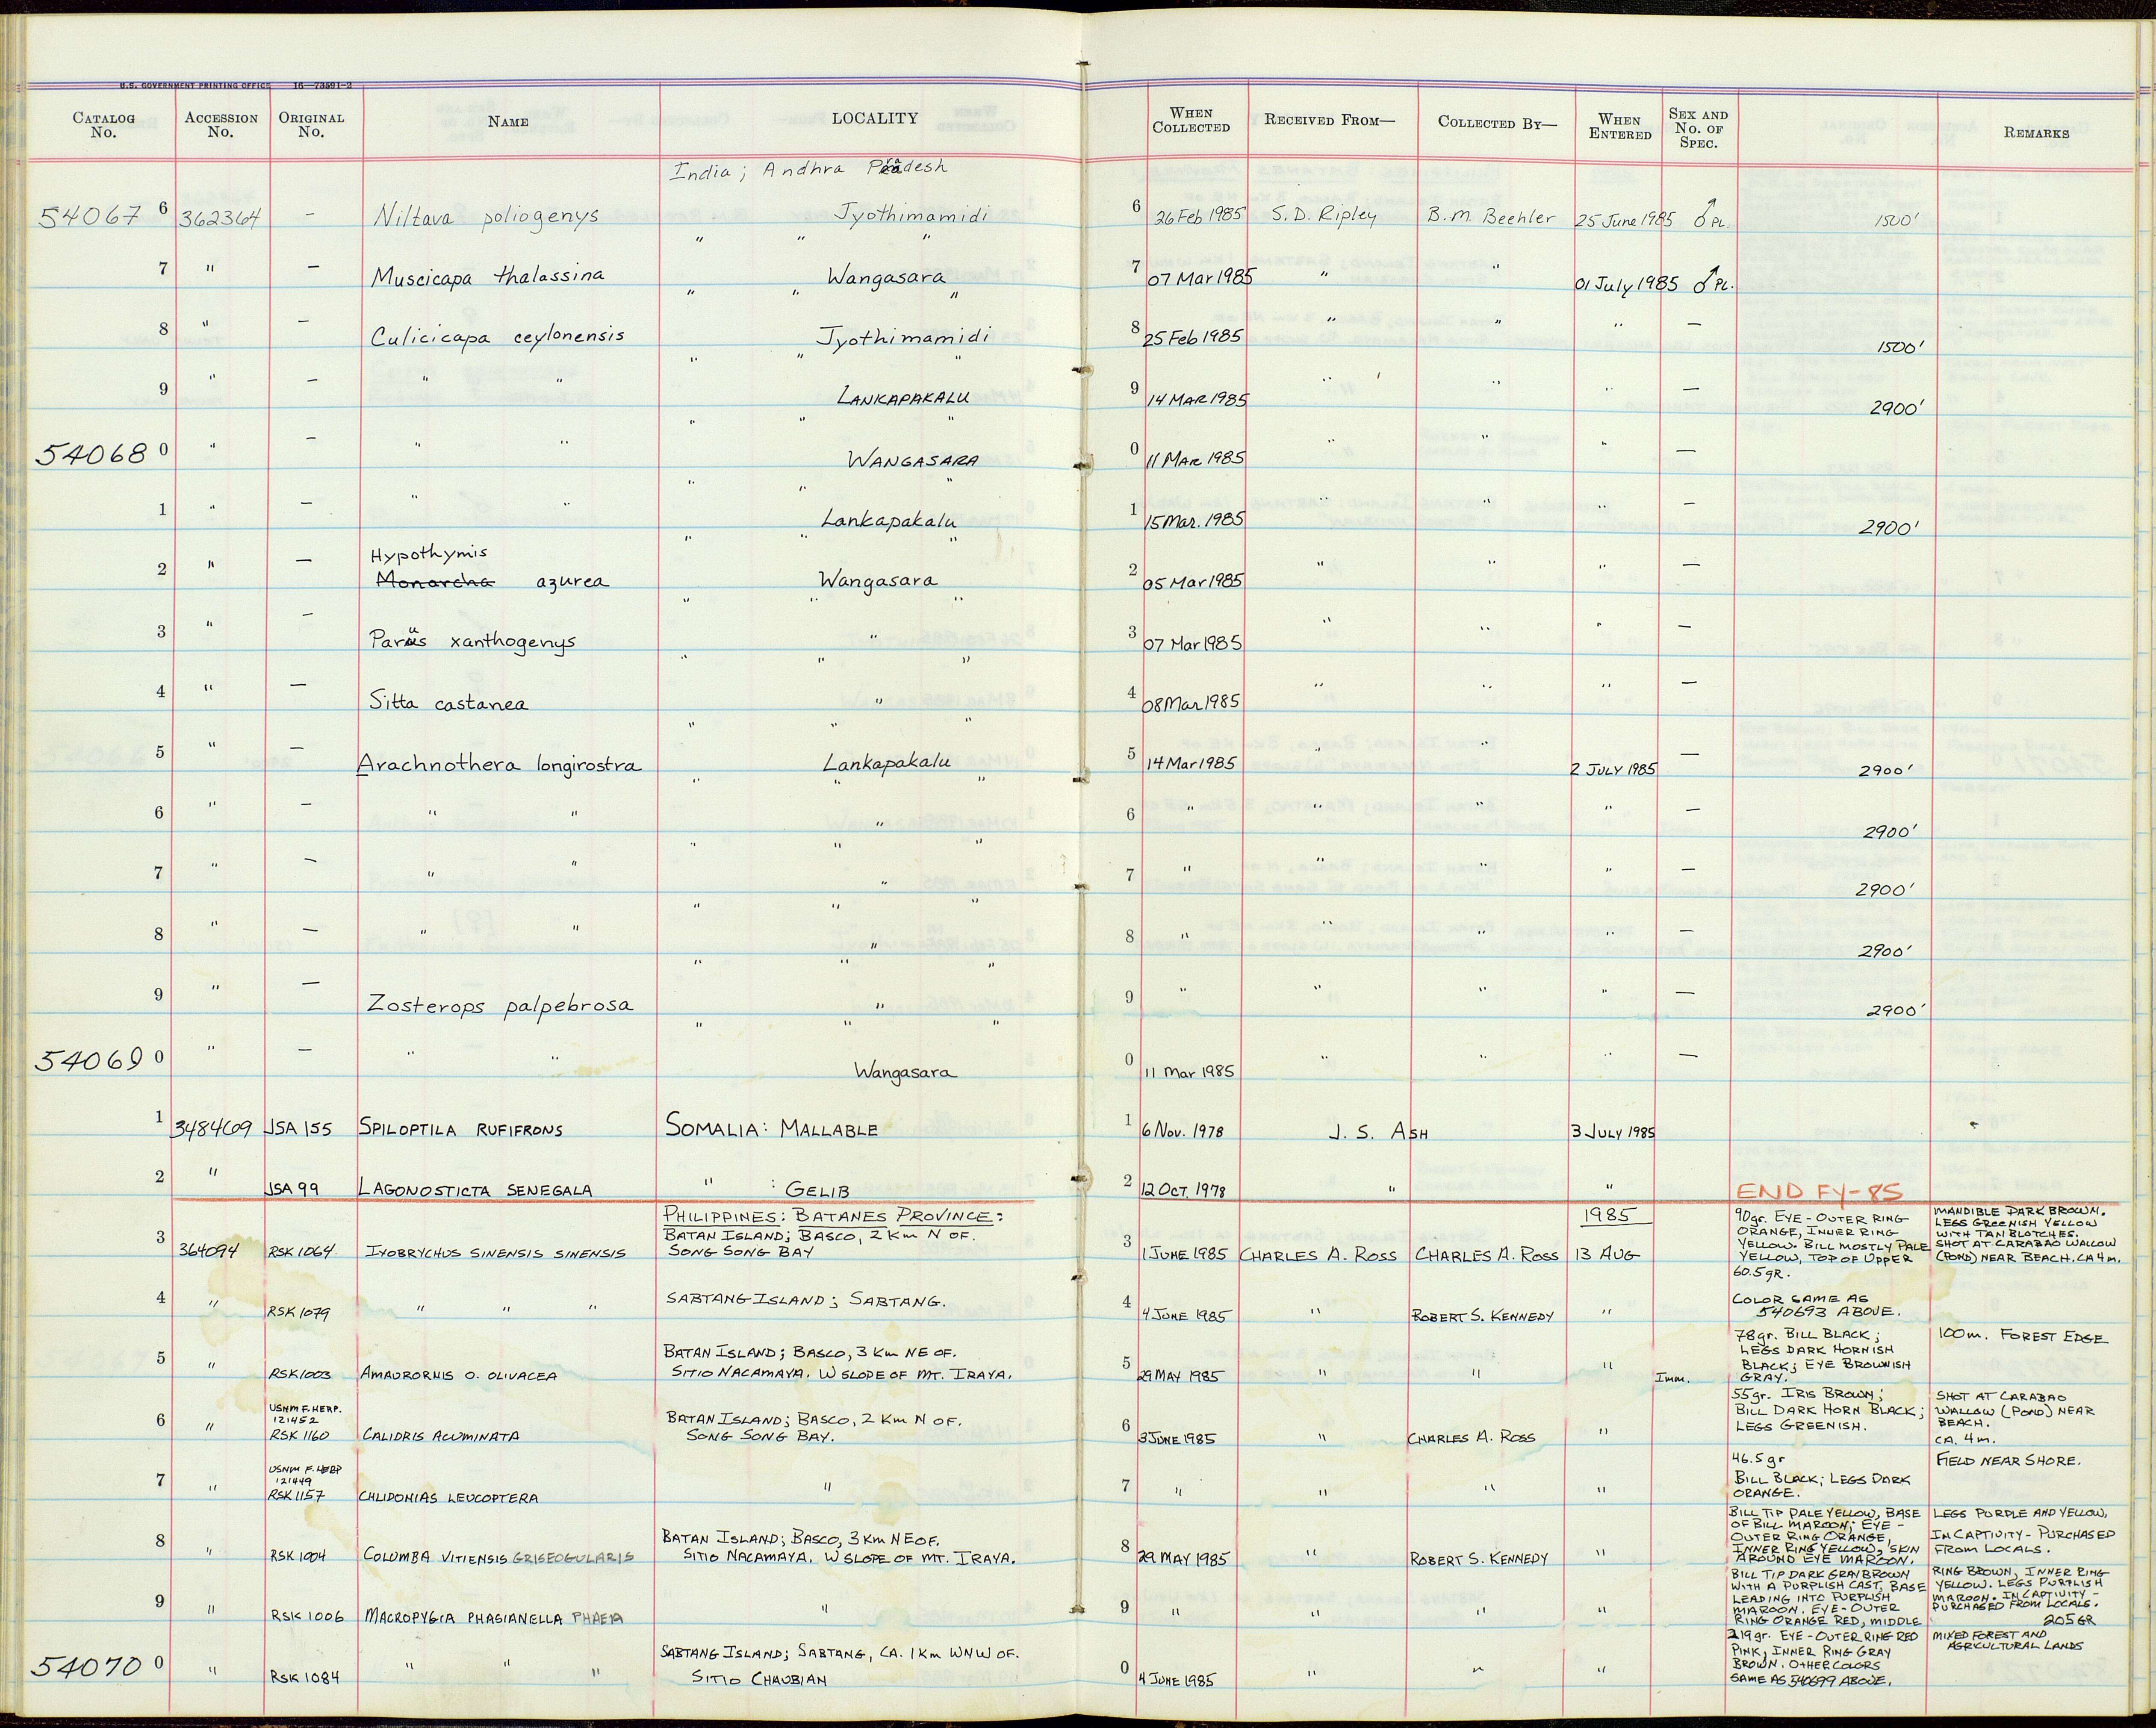 U.S. GOVERNMENT PRINTING OFFICE 16—73591-2
CATALOG No. ACCESSION No. ORIGINAL No. NAME LOCALITY WHEN COLLECTED RECEIVED FROM— COLLECTED BY— WHEN ENTERED SEX AND No. OF SPEC. REMARKS
India; Andhra Pradesh
54067 6 362364 — Niltava poliogenys Jyothimamidi 6 26 Feb 1985 S.D. Ripley B.M. Beehler 25 June 1985 ♂ PL. 1500'
" " "
7 " — Muscicapa thalassina Wangasara 7 07 Mar 1985 " " 01 July 1985 ♂ PL.
" " "
8 " — Culicicapa ceylonensis Jyothimamidi 8 25 Feb 1985 " " " — 1500'
" " "
9 " — " " LANKAPAKALU 9 14 MAR 1985 " " " — 2900'
" " "
54068 0 " — " " WANGASARA 0 11 MAR 1985 " " " —
" " "
1 " — " " Lankapakalu 1 15 Mar. 1985 " " " — 2900'
" " "
Hypothymis
2 " — Monarcha azurea Wangasara 2 05 Mar 1985 " " " —
" " "
3 " — Parus xanthogenys " 3 07 Mar 1985 " " " —
" " "
4 " — Sitta castanea " 4 08 Mar 1985 " " " —
" " "
5 " — Arachnothera longirostra Lankapakalu 5 14 Mar 1985 " " 2 JULY 1985 — 2900'
" " "
6 " — " " " 6 " " " " — 2900'
" " "
7 " — " " " 7 " " " " — 2900'
" " "
8 " — " " " 8 " " " " — 2900'
" " "
9 " — Zosterops palpebrosa " 9 " " " " — 2900'
" " "
54069 0 " — " " Wangasara 0 11 Mar 1985 " " " —
1 348469 JSA 155 SPILOPTILA RUFIFRONS SOMALIA: MALLABLE 1 6 Nov. 1978 J. S. ASH 3 JULY 1985
2 " JSA 99 LAGONOSTICTA SENEGALA " : GELIB 2 12 OCT, 1978 " " END FY-85
PHILIPPINES: BATANES PROVINCE:
1985
3 364094 RSK 1064 IXOBRYCHUS SINENSIS SINENSIS
BATAN ISLAND; BASCO, 2 Km N OF.
SONG SONG BAY
3 1 JUNE 1985 CHARLES A. ROSS CHARLES A. ROSS 13 AUG
90gr. EYE - OUTER RING
ORANGE, INNER RING
YELLOW. BILL MOSTLY PALE
YELLOW, TOP OF UPPER
MANDIBLE DARK BROWN.
LEGS GREENISH YELLOW
WITH TAN BLOTCHES.
SHOT AT CARABAO WALLOW
(POND) NEAR BEACH. CA 4m.
4 " RSK 1079 " " " SABTANG ISLAND; SABTANG. 4 4 JUNE 1985 " ROBERT S. KENNEDY "
60.5gR.
COLOR SAME AS
540693 ABOVE.
5 " RSK 1003 AMAURORNIS O. OLIVACEA
BATAN ISLAND; BASCO, 3 Km NE OF.
SITIO NACAMAYA. W SLOPE OF MT. IRAYA.
5 29 MAY 1985 " " " Imm.
78gr. BILL BLACK;
LEGS DARK HORNISH
BLACK; EYE BROWNISH
GRAY.
100m. FOREST EDGE
USNM F. HERP.
121452
6 " RSK 1160 CALIDRIS ACUMINATA
BATAN ISLAND; BASCO, 2 Km N OF.
SONG SONG BAY.
6 3 JUNE 1985 " CHARLES A. ROSS "
55gr. IRIS BROWN;
BILL DARK HORN BLACK;
LEGS GREENISH.
SHOT AT CARABAO
WALLOW (POND) NEAR
BEACH.
CA. 4m.
USNM F. HERP
121449
7 " RSK 1157 CHLIDONIAS LEUCOPTERA " 7 " " " "
46.5gr
BILL BLACK; LEGS DARK
ORANGE.
FIELD NEAR SHORE.
8 " RSK 1004 COLUMBA VITIENSIS GRISEOGULARIS
BATAN ISLAND; BASCO, 3 Km NE OF.
SITIO NACAMAYA. W SLOPE OF MT. IRAYA.
8 29 MAY 1985 " ROBERT S. KENNEDY "
BILL TIP PALE YELLOW, BASE
OF BILL MAROON; EYE -
OUTER RING ORANGE,
INNER RING YELLOW, SKIN
AROUND EYE MAROON.
LEGS PURPLE AND YELLOW.
IN CAPTIVITY - PURCHASED
FROM LOCALS.
9 " RSK 1006 MACROPYGIA PHASIANELLA PHAEA " 9 " " " "
BILL TIP DARK GRAY BROWN
WITH A PURPLISH CAST, BASE
LEADING INTO PURPLISH
MAROON. EYE - OUTER
RING ORANGE RED, MIDDLE
RING BROWN, INNER RING
YELLOW. LEGS PURPLISH
MAROON. IN CAPTIVITY -
PURCHASED FROM LOCALS.
205GR
54070 0 " RSK 1084 " " "
SABTANG ISLAND; SABTANG, CA. 1 Km WNW OF.
SITIO CHAUBIAN
0 4 JUNE 1985 " " "
219gr. EYE - OUTER RING RED
PINK, INNER RING GRAY
BROWN. OTHER COLORS
SAME AS 540699 ABOVE.
MIXED FOREST AND
AGRICULTURAL LANDS